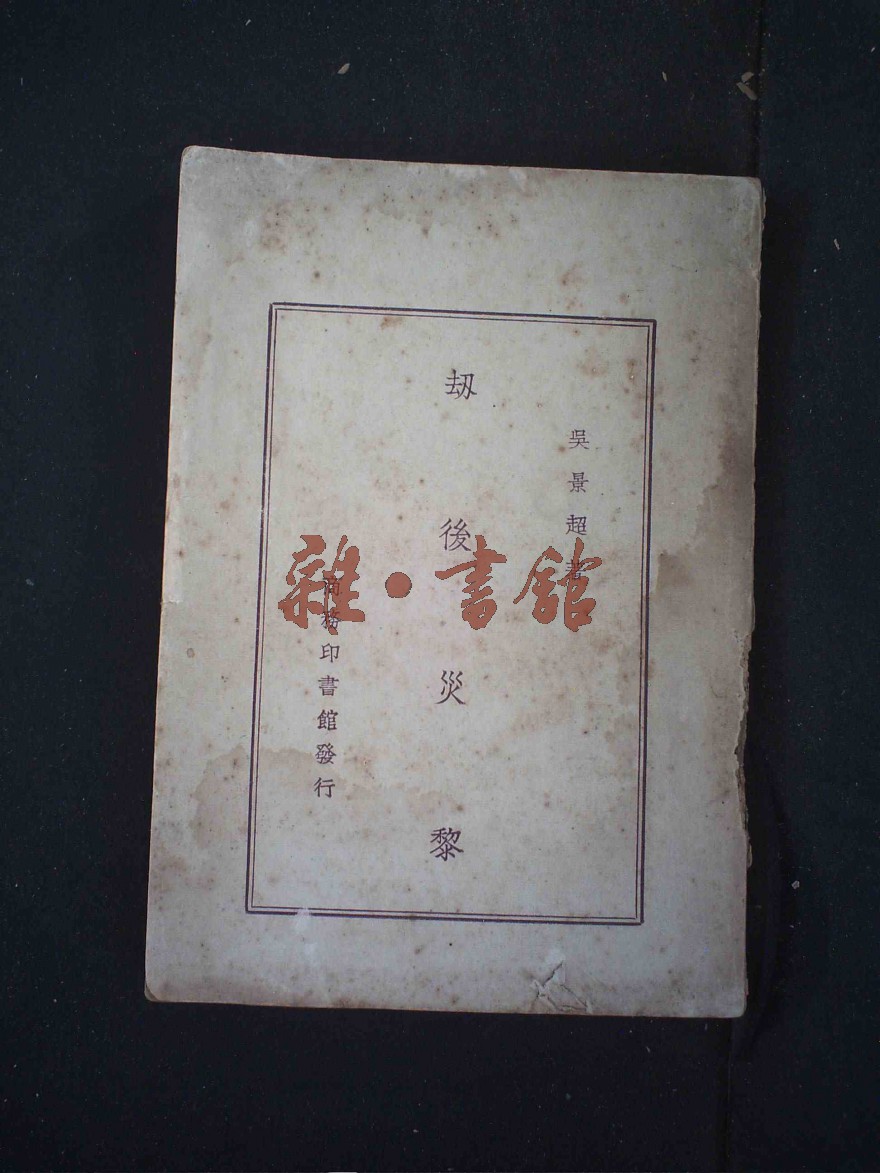 吳景超著
刼後災黎
商務印書館發行
雜·書館